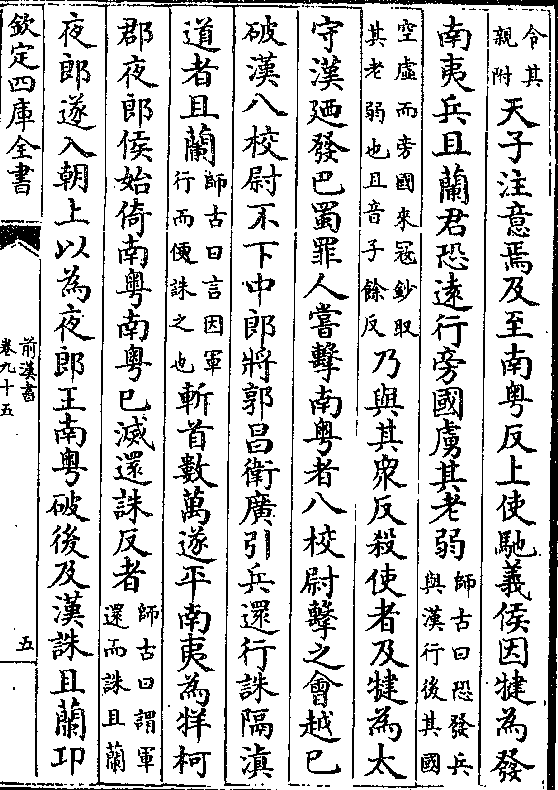 令其親附天子注意焉及至南粤反上使馳義侯因犍為發
南夷兵且蘭君恐遠行旁國虜其老弱師古曰恐發兵與漢行後其國
空虛而旁國來冦鈔取其老弱也且音子餘反乃與其衆反殺使者及犍為太
守漢廼發巴蜀罪人嘗擊南粤者八校尉擊之會越已
破漢八校尉不下中郎將郭昌衛廣引兵還行誅隔滇
道者且蘭師古曰言因軍行而便誅之也斬首數萬遂平南夷為牂柯
郡夜郎侯始倚南粤南粤已滅還誅反者師古曰謂軍還而誅且蘭
夜郎遂入朝上以為夜郎王南粤破後及漢誅且蘭卭
欽定四庫全書
前漢書
卷九十五
五